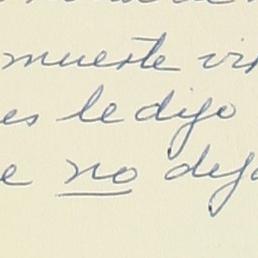 muerte vi
es le dijo
e no dej